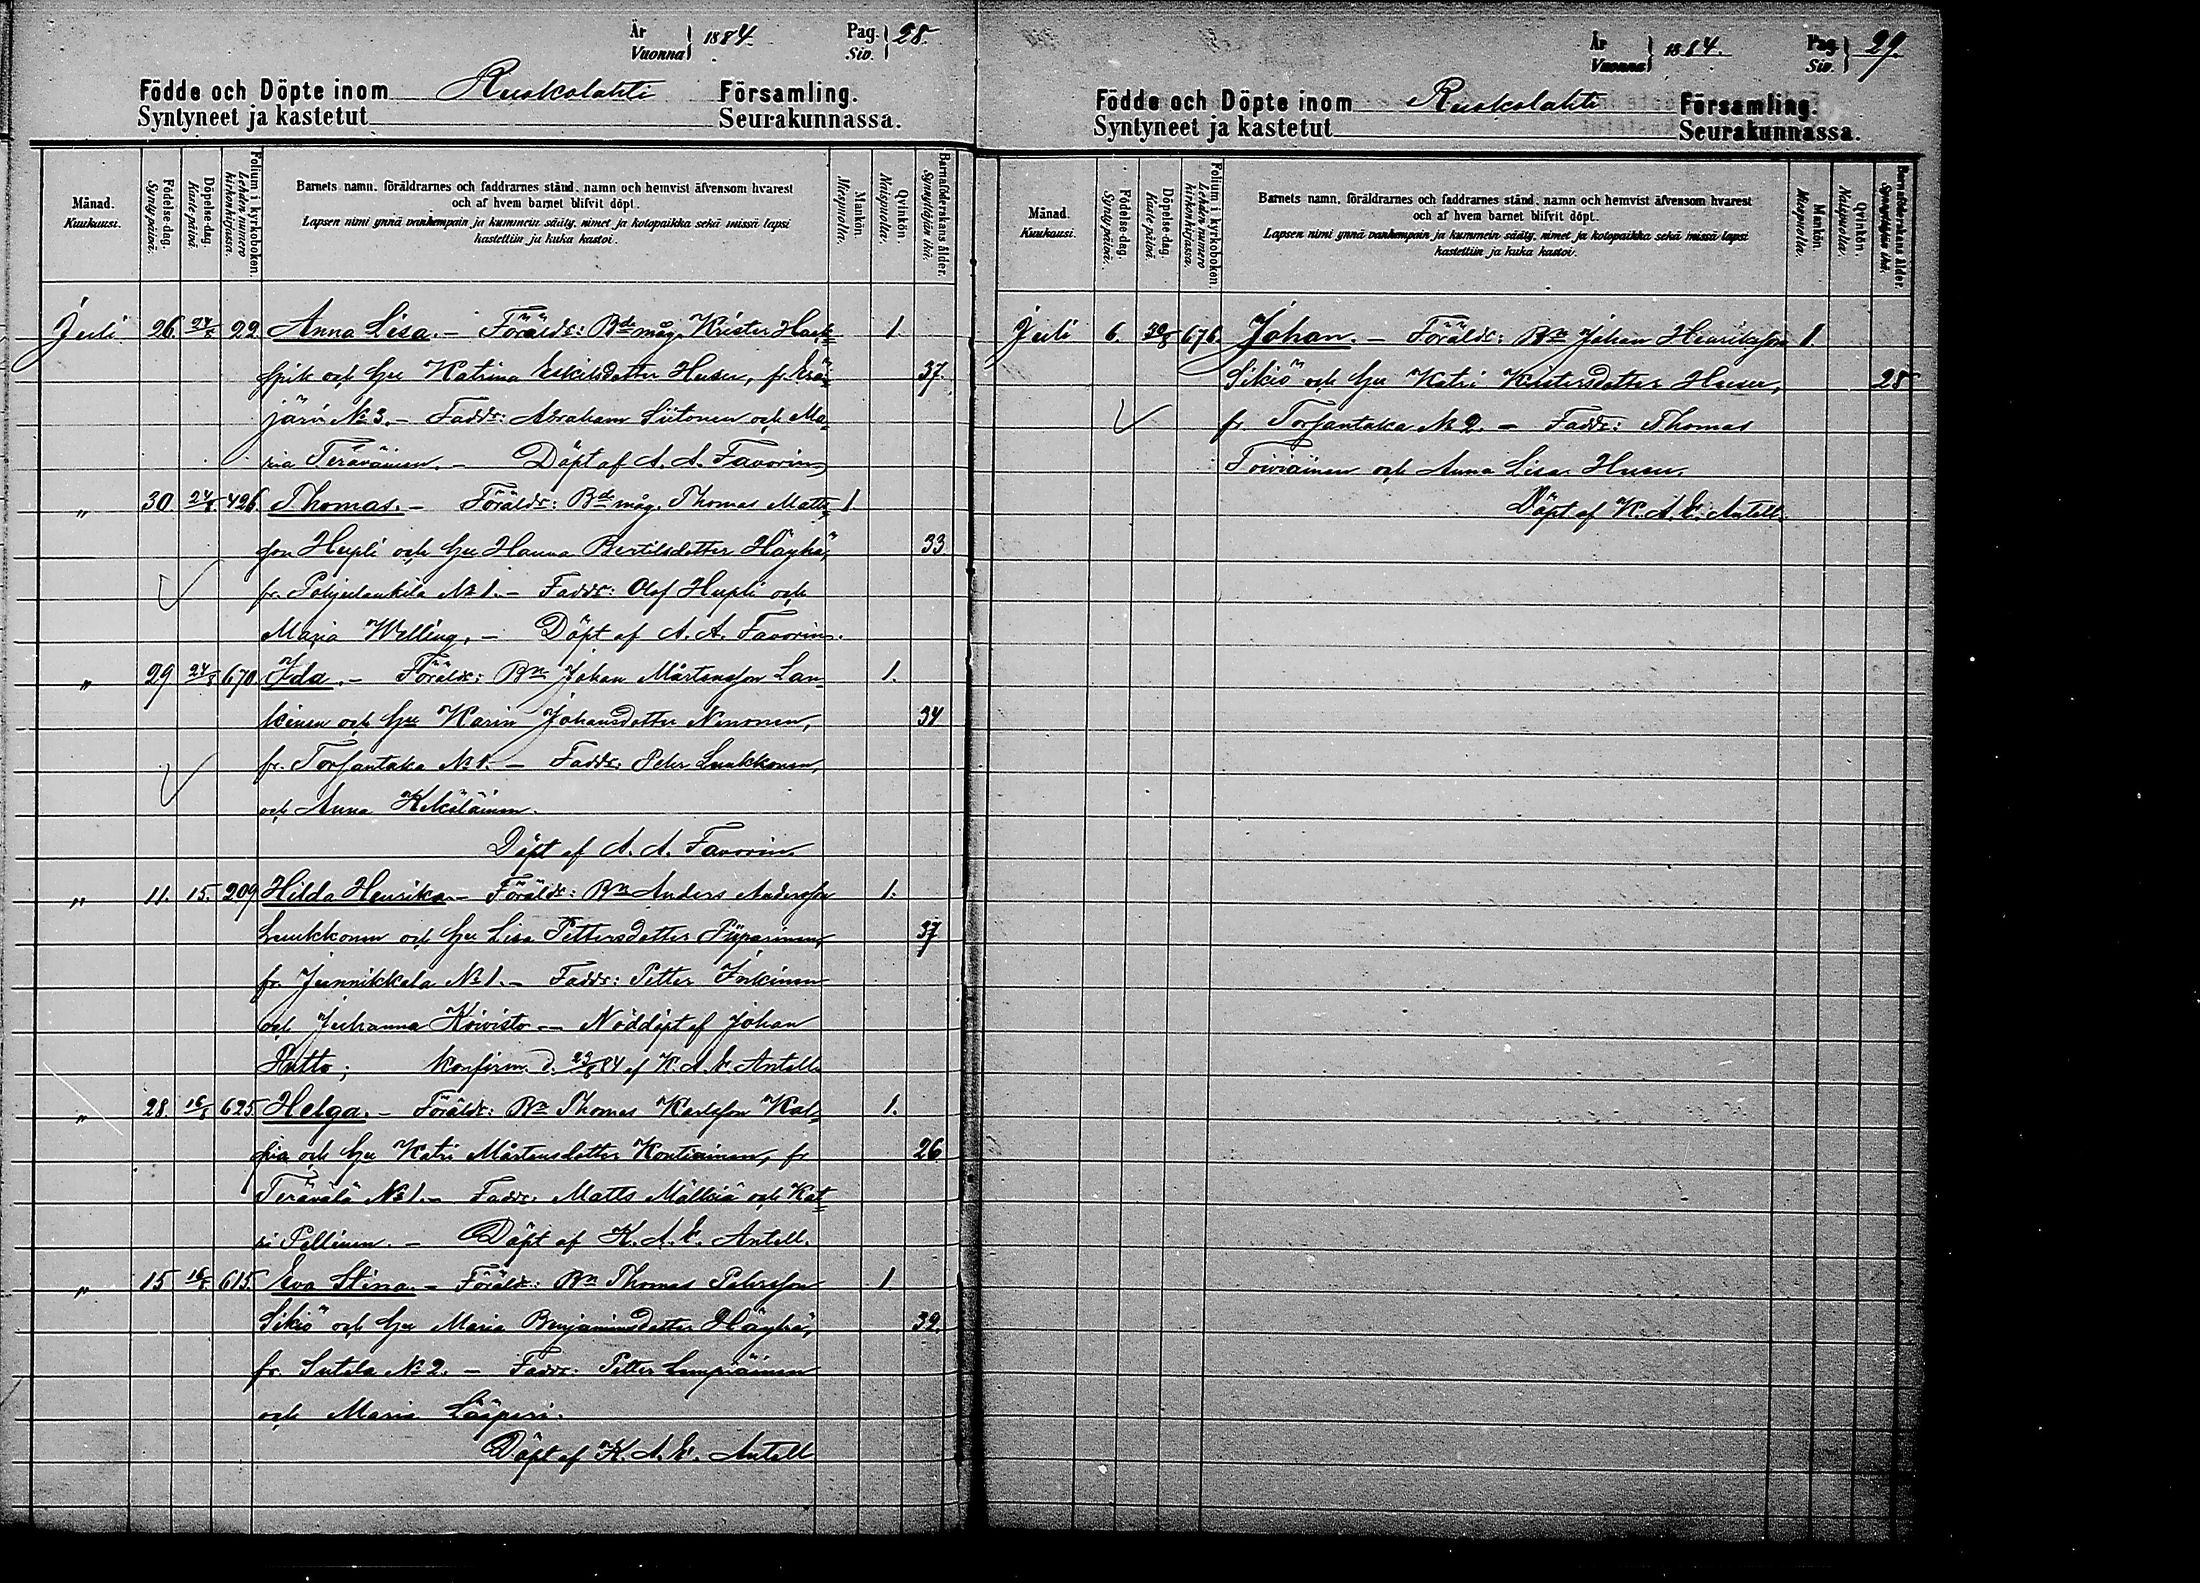 År Vuonna } 1884. Pag. Siv. } 28.
Födde och Döpte inom Ruokolahti Församling.
Syntyneet ja kastetut Seurakunnassa.
Månad. Kuukausi.
Födelse-dag. Synty päivä.
Döpelse-dag. Kaste päivä.
Folium i kyrkoboken. Lehden numero kirkonkirjassa.
Barnets namn, föräldrarnes och faddrarnes stånd, namn och hemvist äfvensom hvarest
och af hvem barnet blifvit döpt.
Lapsen nimi ynnä vanhempain ja kummein sääty, nimet ja kotopaikka sekä missä lapsi
kastettiin ja kuka kastoi.
Mankön. Miespuolia.
Qvinkön. Naispuolia.
Barnaföderskans ålder. Synnyttäjän ikä.
Juli 26. 24/8 22 Anna Lisa. – Föräldr: Bde måg. Krister Hack= 1.
spik och hu Katrina Eskilsdotter Husu, fr. Erä= 37.
järvi No 3. – Faddr: Abraham Siitonen och Ma=
ria Teräväinen. – Döpt af A. A. Favorin
„ 30 24/8 426 Thomas. – Föräldr: Bde måg. Thomas Matts= 1
son Hupli och hu Hanna Bertilsdotter Häyhä, 33
fr. Pohjalankila No 1. – Faddr: Olof Hupli och
Maria Welling. – Döpt af A. A. Favorin.
„ 29 24/8 670 Ida. – Föräldr: Bn Johan Mårtensson Lan= 1.
kinen och hu Karin Johansdotter Nenonen, 34
fr. Torsantaka No 1. – Faddr: Peter Luukkonen,
och Anna Kekäläinen.
Döpt af A. A. Favorin.
„ 11. 15. 209 Hilda Henrika – Föräldr: Bn Anders Andersson 1.
Luukkonen och hu Lisa Pettersdotter Piiparinen, 37
fr. Junnikkala No 1. – Faddr: Petter Inkinen
och Juhanna Koivisto – Nöddöpt af Johan
Hutto; konfirm. d. 23/8 84 af K. A. E. Antell.
„ 28. 16/8 625 Helga. – Föräldr: Bn Thomas Karlsson Kal= 1.
pia och hu Katri Mårtensdotter Kontiainen, fr 26
Terävälä No 1. – Faddr: Matts Mälkiä och Kat=
ri Pellinen. – Döpt af K. A. E. Antell.
„ 15 16/8 615. Eva Stina. – Föräldr: Bn Thomas Petersson 1.
Sikiö och hu Maria Benjaminsdotter Häyhä, 39.
fr. Sutela No 2. – Faddr: Petter Lempiäinen
och Maria Lääperi.
Döpt af K. A. E. Antell
År Vuonna } 1884. Pag. Siv. } 29.
Födde och Döpte inom Ruokolahti Församling.
Syntyneet ja kastetut Seurakunnassa.
Månad. Kuukausi.
Födelse-dag. Synty päivä.
Döpelse-dag. Kaste päivä.
Folium i kyrkoboken. Lehden numero kirkonkirjassa.
Barnets namn, föräldrarnes och faddrarnes stånd, namn och hemvist äfvensom hvarest
och af hvem barnet blifvit döpt.
Lapsen nimi ynnä vanhempain ja kummein sääty, nimet ja kotopaikka sekä missä lapsi
kastettiin ja kuka kastoi.
Mankön. Miespuolia.
Qvinkön. Naispuolia.
Barnaföderskans ålder. Synnyttäjän ikä.
Juli 6. 30/8 676. Johan. – Föräldr: Bn Johan Henriksson 1.
Sikiö och hu Katri Kristersdotter Husu, 28
fr. Torsantaka No 2. – Faddr: Thomas
Toiviainen och Anna Lisa Husu.
Döpt af K. A. E. Antell.